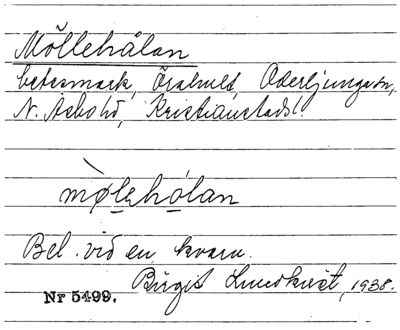 Möllehålan
betesmark, Örahult, Oderljunga sn,
N. Åsbo hd, Kristianstads l.
mølehólan
Bel. vid en kvarn.
Birgit Lundkvist, 1938.
Nr 5499.